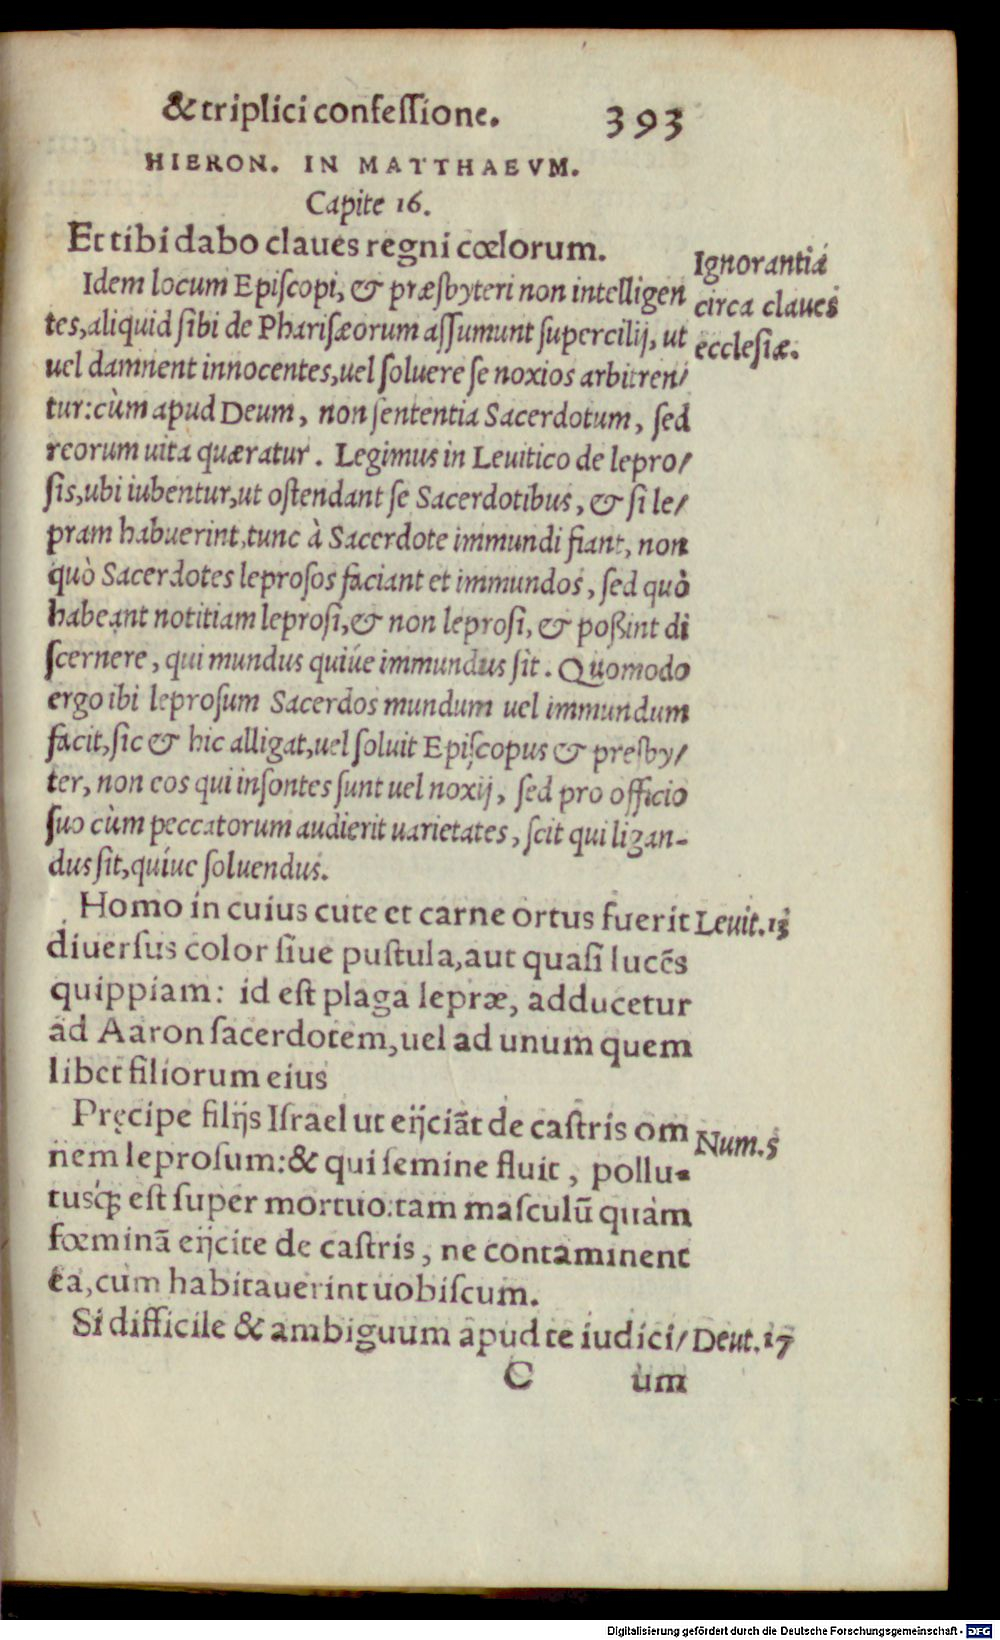 & triplici confeſſione. 393
HIERON. IN MATTHAEVM.
Capite 16.
Et tibi dabo claues regni cœlorum.
Ignorantia
circa claues
eccleſiæ.
Idem locum Epiſcopi, & præſbyteri non intelligen
tes, aliquid ſibi de Phariſæorum aſſumunt ſupercilij, ut
uel damnent innocentes, uel ſoluere ſe noxios arbitren/
tur: cùm apud Deum, non ſententia Sacerdotum, ſed
reorum uita quæratur. Legimus in Leuitico de lepro/
ſis, ubi iubentur, ut oſtendant ſe Sacerdotibus, & ſi le/
pram habuerint, tunc à Sacerdote immundi fiant, non
quò Sacerdotes leproſos faciant et immundos, ſed quò
habeant notitiam leproſi, & non leproſi, & poßint di
ſcernere, qui mundus quiúe immundus ſit. Quomodo
ergo ibi leproſum Sacerdos mundum uel immundum
facit, ſic & hic alligat, uel ſoluit Epiſcopus & preſby/
ter, non eos qui inſontes ſunt uel noxij, ſed pro officio
ſuo cùm peccatorum audierit uarietates, ſcit qui ligan-
dus ſit, quíue ſoluendus.
Homo in cuius cute et carne ortus fuerit Leuit. 13
diuerſus color ſiue puſtula, aut quaſi lucẽs
quippiam: id eſt plaga lepræ, adducetur
ad Aaron ſacerdotem, uel ad unum quem
libet filiorum eius
Pręcipe filijs Iſrael ut eijciãt de caſtris om Num. 5
nem leproſum: & qui ſemine fluit, pollu-
tusq́; eſt ſuper mortuo: tam maſculũ quàm
fœminã eijcite de caſtris, ne contaminent
ea, cum habitauerint uobiſcum.
Si difficile & ambiguum apud te iudici/ Deut. 17
C um
Digitalisierung gefördert durch die Deutsche Forschungsgemeinschaft - DFG